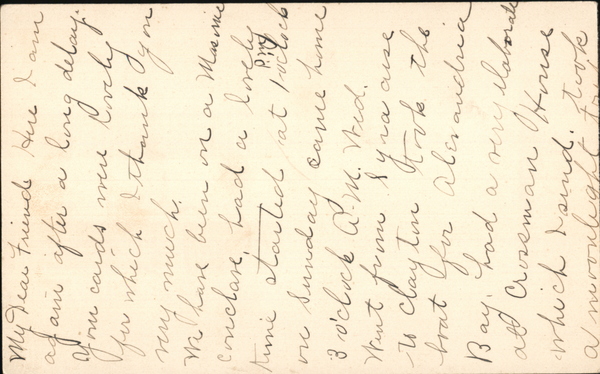 My Dear Friend Here I am
again after a long delay.
Your cards were lovely
for which I thank you
very much.
We have been on a Masonic
conclave, had a lovely
time started at 1 o'clock P.M.
on Sunday came home
3 o'clock A.M. Wed.
Went from Syracuse
to Clayton took the
boat for Alexandria
Bay, had a very elaborate
at Crossman House
which I send. took
a moonlight